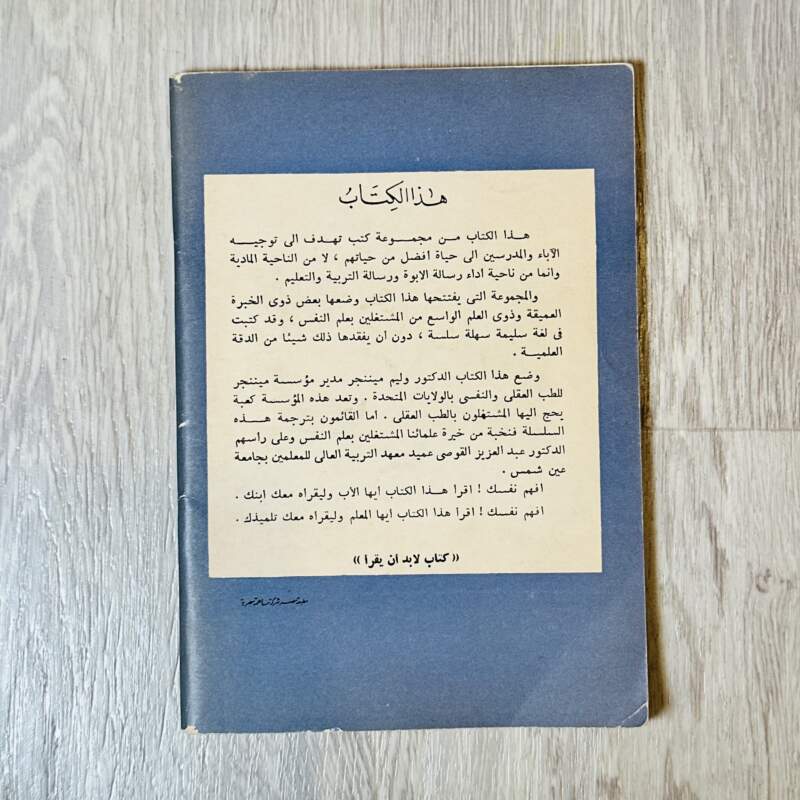 هٰذا الكِتَابُ
هذا الكتاب من مجموعة كتب تهدف الى توجيه
الآباء والمدرسين الى حياة افضل من حياتهم ، لا من الناحية المادية
وانما من ناحية اداء رسالة الابوة ورسالة التربية والتعليم .
والمجموعة التى يفتتحها هذا الكتاب وضعها بعض ذوى الخبرة
العميقة وذوى العلم الواسع من المشتغلين بعلم النفس ، وقد كتبت
فى لغة سليمة سهلة سلسة ، دون أن يفقدها ذلك شيئا من الدقة
العلمية .
وضع هذا الكتاب الدكتور وليم ميننجر مدير مؤسسة ميننجر
للطب العقلى والنفسى بالولايات المتحدة . وتعد هذه المؤسسة كعبة
يحج اليها المشتغلون بالطب العقلى . اما القائمون بترجمة هذه
السلسلة فنخبة من خيرة علمائنا المشتغلين بعلم النفس وعلى راسهم
الدكتور عبد العزيز القوصى عميد معهد التربية العالى للمعلمين بجامعة
عين شمس .
افهم نفسك ! اقرأ هذا الكتاب أيها الأب وليقراه معك ابنك .
افهم نفسك ! اقرأ هذا الكتاب أيها المعلم وليقراه معك تلميذك .
« كتاب لابد ان يقرا »